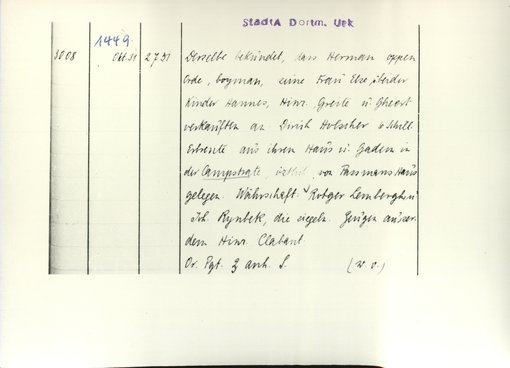 StadtA Dortm. Urk
1449
3008 Okt. 31 2731 Derselbe bekundet, dass Herman oppen
Orde, bogman, seine Frau Else, über der
Kinder Hannes, Hinr. Greite u. Gheert
verkauften an Dirich Holscher 6 Schill.
Erbrente aus ihren Haus u. Gadem in
der Campstrate, von Tassmans Haus
gelegen. Währschaft: Rotger Lemberghe u
Joh. Rynbek, die siegeln. Zeugen ausser
dem Hinr. Clabant.
Or. Pgt. 3 anh. S. (w. o.)